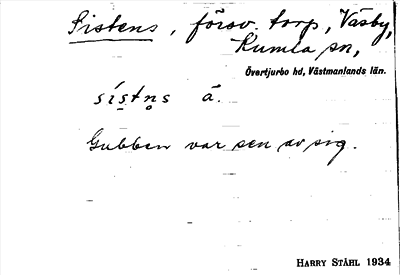 Sistens, försv. torp, Väsby,
Kumla sn,
Övertjurbo hd, Västmanlands län.
sístn̥s ā.
Gubben var sen av sig.
HARRY STÅHL 1934